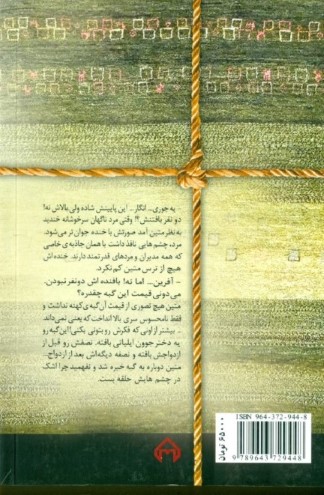 - یه جوری... انگار... این پایینش شاده ولی بالاش نه!
دو نفر بافتنش؟! وقتی مرد ناگهان سرخوشانه خندید
به نظر متین آمد صورتش با خنده جوان‌تر می‌شود.
مرد، چشم هایی نافذ داشت با همان جاذبه‌ی خاصی
که همه مدیران و مردهای قدرتمند دارند. خنده‌اش
هیچ از ترس متین کم نکرد.
- آفرین... اما نه! بافنده اش دو نفر نبودن.
می‌دونی قیمت این گبه چقدره؟
متین هیچ تصوری از قیمت آن گبه‌ی کهنه نداشت و
فقط نامحسوس سری بالا انداخت که یعنی نمی‌داند.
- بیشتر از اونی که فکرش رو بتونی بکنی! این گبه رو
یه دختر جوون ایلیاتی بافته. نصفش رو قبل از
ازدواجش بافته و نصفه دیگه‌اش بعد از ازدواج...
متین دوباره به گبه خیره شد و نفهمید چرا اشک
در چشم هایش حلقه بست.
ISBN 964-372-944-8
9 789643 729448
۶۵۰۰۰ تومان